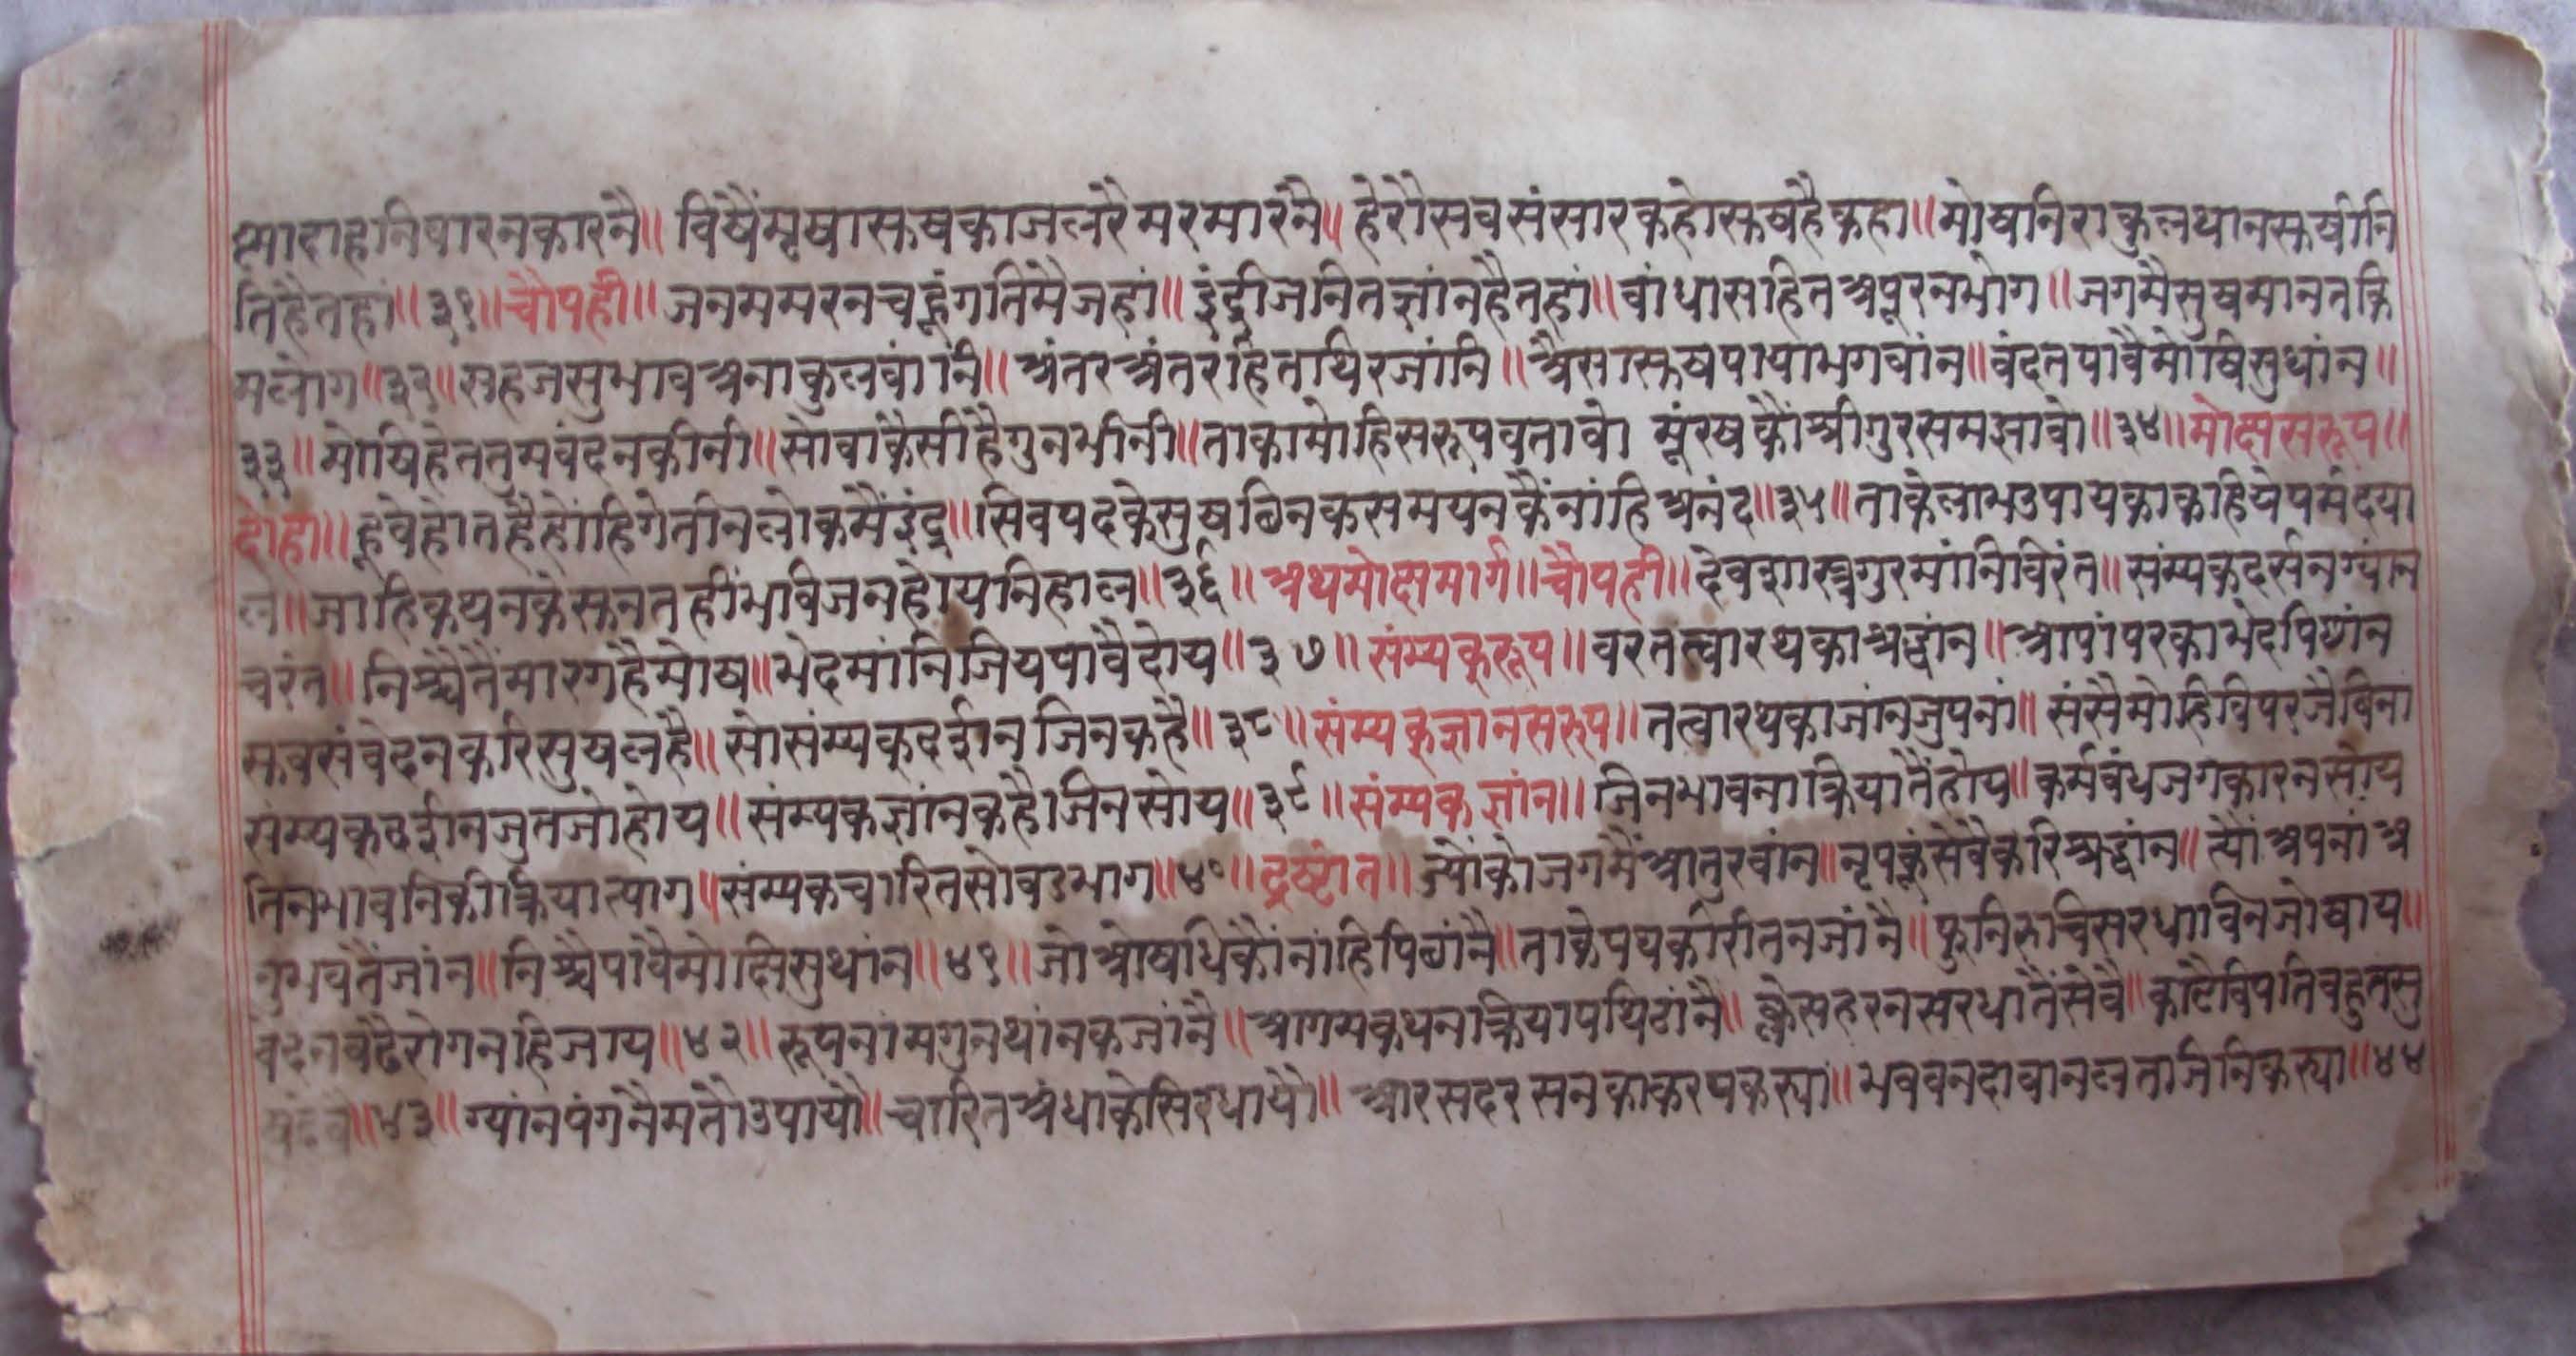 दाहनिवारनकारनै॥ विषैंमृषासुषकाजलरैमरमारनै॥ हेरौसवसंसारकहोसुषहैकहा॥ मोषनिराकुलथानसुषीनि
तिहैतहां॥३१॥ चौपही॥ जनममरनचहूंगतिमैजहां॥ इंद्रीजनितज्ञांनहैतहां॥ बांधासहितअपूरनभोग॥ जगमैसुषमानतकि
मलोग॥३२॥ सहजसुभावअनाकुलवांनि॥ अंतरअंतरहितथिरजांनि॥ अैसासुषपायाभगवांन॥ वंदतपावैमोषिसुथांन॥
३३॥ मोषिहेततुमवंदनकीनी॥ सोवाकैसीहैगुनभीनी॥ ताकामोहिसरूपवतावो मूंरषकौंश्रीगुरसमझावो॥३४॥ मोक्षसरूप॥
दोहा॥ हूवेहोतहैहोंहिगेतीनलोकमैंइंद्र॥ सिवपदकेसुषबिनकसमयनकैंनांहिअनंद॥३५॥ ताकेलाभउपायकाकहियेपर्मदया
ल॥ जाहिकथनकेसुनतहींभविजनहोयनिहाल॥३६॥ अथमोक्षमार्ग॥ चौपही॥ देवशास्त्रगुरमांनिविरंत॥ संम्यकदर्सनग्यांन
चरंत॥ निश्चैतैंमारगहैमोष॥ भेदमांनिजियपावैदोय॥३७॥ संम्यकूरूप॥ वरतत्वारथकाश्रद्धांन॥ आपांपरकाभेदपिछांन
सुवसंवेदनकरिसुषलहै॥ सोसंम्यकदर्शनजिनकहै॥३८॥ संम्यकज्ञानसरूप॥ तत्वारथकाजांनजुपनां॥ संसैमोहिविपरजैबिना
संम्यकदर्शनजुतजोहोय॥ संम्यकज्ञांनकहैजिनसोय॥३९॥ संम्यकज्ञांन॥ जिनभावनाक्रियातैंहोय॥ कर्मबंधजगकारनसोय
तिनभावनिकीक्रियात्याग॥ संम्यकचारितसोवडभाग॥४०॥ द्रष्टांत॥ ज्योंकोजगमैंआतुरवांन॥ नृपकूंसेवैकरिश्रद्धांन॥ त्यौंअपनांअ
नुभवतैंजांन॥ निश्चैपावैमोक्षिसुथांन॥४१॥ जोओषधिकौंनांहिपिछांनै॥ ताकेपथकीरीतनजांनै॥ फुनिरुचिसरधाविनजोषाय॥
वेदनवढैरोगनहिजाय॥४२॥ रूपनांमगुनथांनकजांनै॥ आगमकथनक्रियापथिठांनै॥ क्लेसहरनसरधातैंसेवै॥ काटैविपतिबहुतसु
॥४३॥ ग्यांनपंगनैमतौउपायौ॥ चारितअंधाकेसिरधायौ॥ आरसदरसनकाकरपकस्या॥ भववनदावानलताजिनिकस्या॥४४